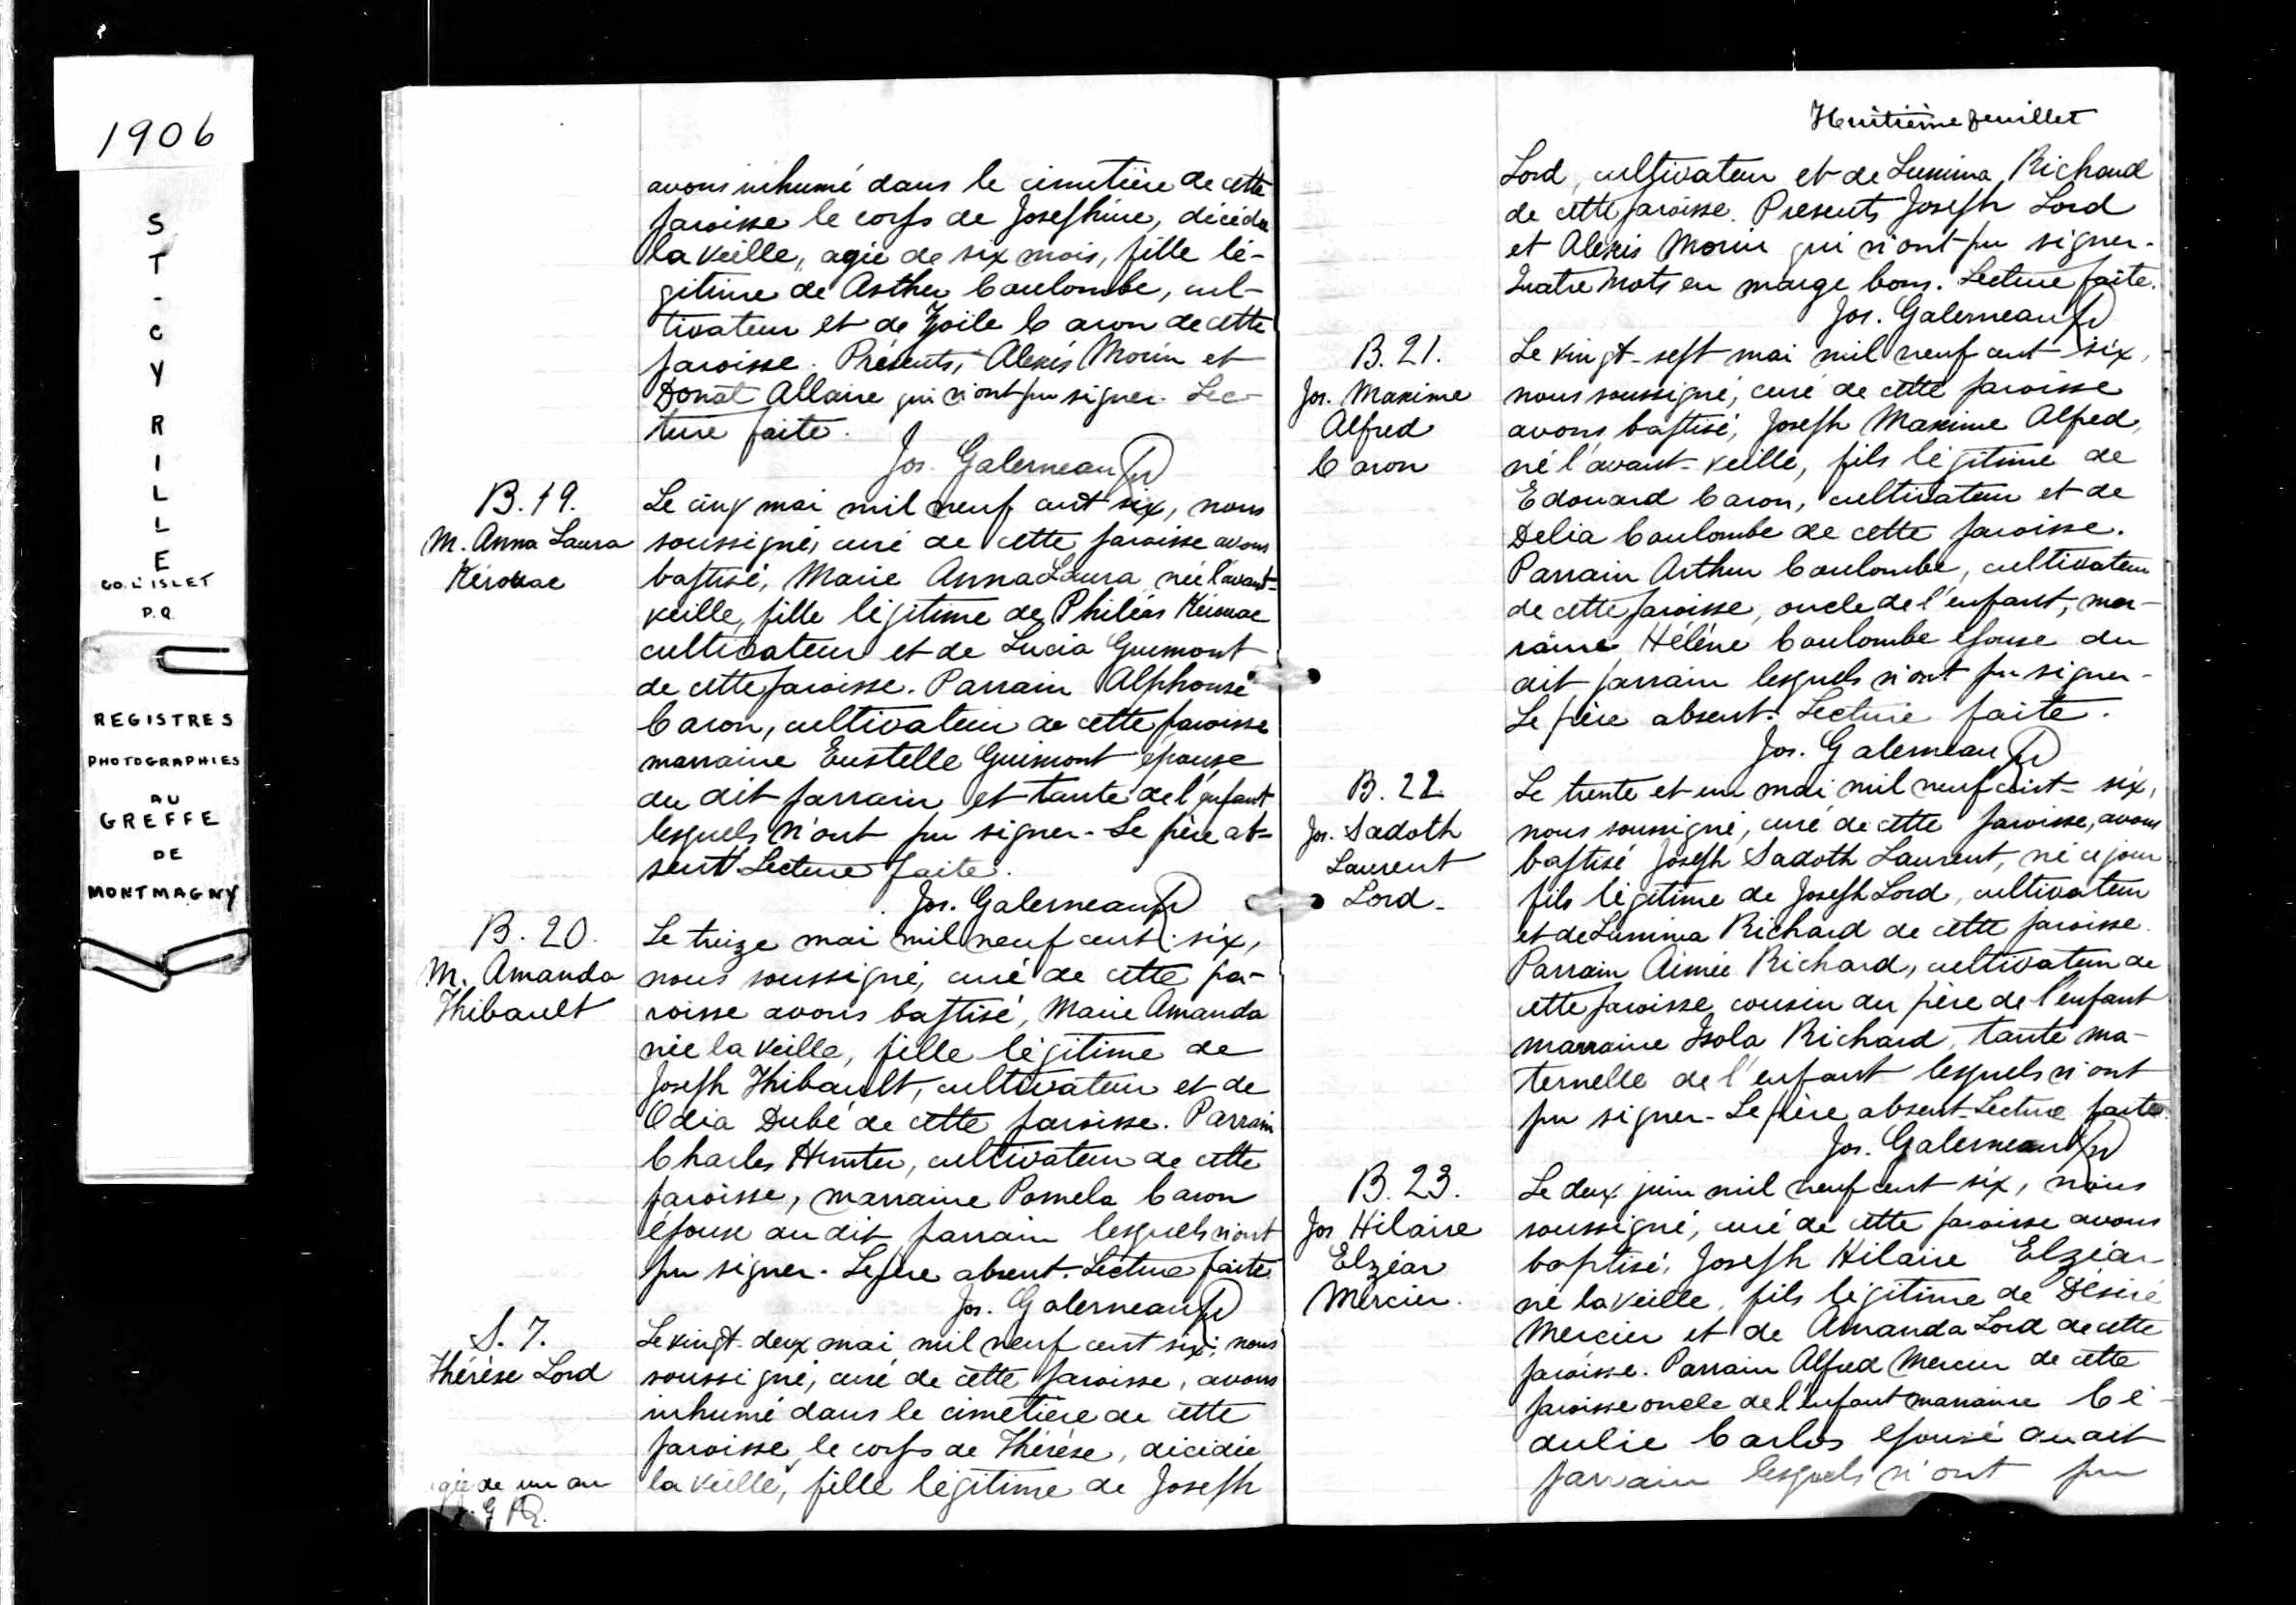 1906
ST-CYRILLE
CO. L'ISLET
P.Q.
REGISTRES
PHOTOGRAPHIES
AU
GREFFE
DE
MONTMAGNY
avons inhumé dans le cimetière de cette
paroisse le corps de Josephine, décédée
la veille, agée de six mois, fille lé-
gitime de Arthur Coulombe, cul-
tivateur et de Zoïle Caron de cette
paroisse. Présents, Alexis Morin et
Donat Allaire qui n'ont pu signer. Lec-
ture faite.
Jos. Galerneau Ptr
B. 19.
M. Anna Laura
Kérouac
Le cinq mai mil neuf cent six, nous
soussigné, curé de cette paroisse avons
baptisé, Marie Anna Laura née l'avant-
veille, fille légitime de Philéas Kérouac
cultivateur et de Lucia Guimont
de cette paroisse. Parrain Alphonse
Caron, cultivateur de cette paroisse
marraine Eustelle Guimont épouse
du dit parrain et tante de l'enfant
lesquels n'ont pu signer. Le père ab-
sent. Lecture faite.
Jos. Galerneau Ptr
B. 20.
M. Amanda
Thibault
Le treize mai mil neuf cent six,
nous soussigné, curé de cette pa-
roisse avons baptisé, Marie Amanda
née la veille, fille légitime de
Joseph Thibault, cultivateur et de
Odia Dubé de cette paroisse. Parrain
Charles Hunter, cultivateur de cette
paroisse, marraine Pomela Caron
épouse du dit parrain lesquels n'ont
pu signer. Le père absent. Lecture faite
Jos. Galerneau Ptr
S. 7.
Thérèse Lord
Le vingt-deux mai mil neuf cent six, nous
soussigné, curé de cette paroisse, avons
inhumé dans le cimetière de cette
paroisse, le corps de Thérèse, décédée
la veille, fille légitime de Joseph
agée de un an
J. G Ptr.
Huitième feuillet
Lord, cultivateur et de Lumina Richard
de cette paroisse. Presents Joseph Lord
et Alexis Morin qui n'ont pu signer.
Quatre mots en marge bons. Lecture faite.
Jos. Galerneau Ptr
B. 21.
Jos. Maxime
Alfred
Caron
Le vingt-sept mai mil neuf cent six,
nous soussigné, curé de cette paroisse
avons baptisé, Joseph Maxime Alfred,
né l'avant-veille, fils légitime de
Edouard Caron, cultivateur et de
Delia Coulombe de cette paroisse.
Parrain Arthur Coulombe, cultivateur
de cette paroisse, oncle de l'enfant, mar-
raine Hélène Coulombe épouse du
dit parrain lesquels n'ont pu signer.
Le père absent. Lecture faite.
Jos. Galerneau Ptr
B. 22
Jos. Sadoth
Laurent
Lord.
Le trente et un mai mil neuf cent six,
nous soussigné, curé de cette paroisse, avons
baptisé Joseph Sadoth Laurent, né ce jour
fils légitime de Joseph Lord, cultivateur
et de Lumina Richard de cette paroisse.
Parrain Aimée Richard, cultivateur de
cette paroisse cousin du père de l'enfant
marraine Isola Richard, tante ma-
ternelle de l'enfant lesquels n'ont
pu signer. Le père absent. Lecture faite.
Jos. Galerneau Ptr
B. 23.
Jos Hilaire
Elzéar
Mercier.
Le deux juin mil neuf cent six, nous
soussigné, curé de cette paroisse avons
baptisé, Joseph Hilaire Elzéar
né la veille, fils légitime de Désiré
Mercier et de Amanda Lord de cette
paroisse. Parrain Alfred Mercier de cette
paroisse oncle de l'enfant marraine Cé-
dulie Carlos épouse du dit
parrain lesquels n'ont pu